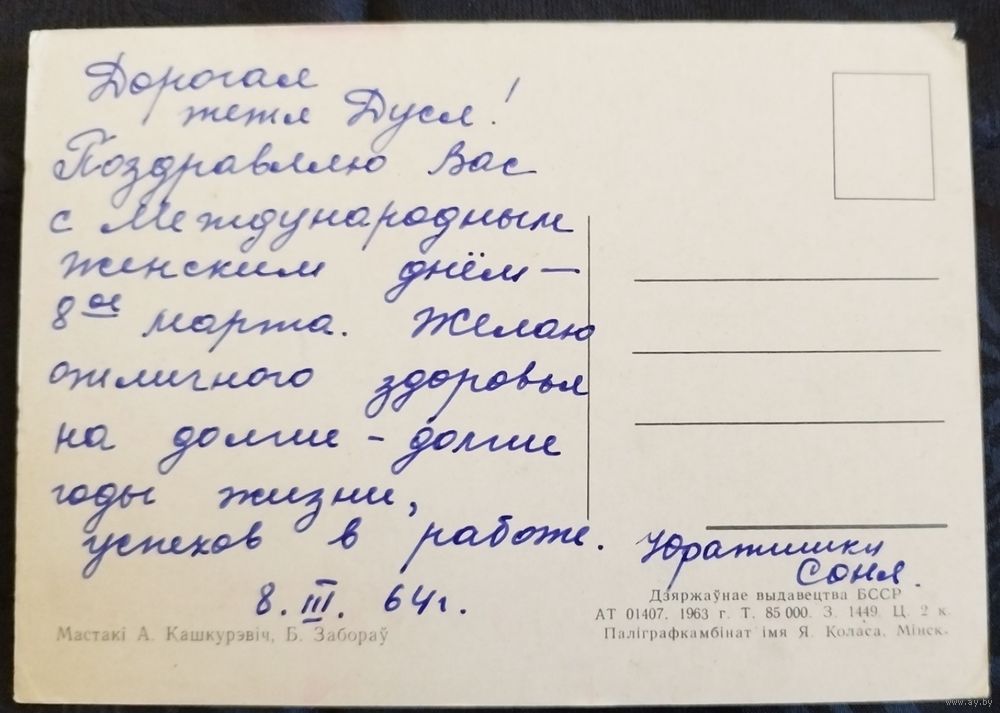 Дорогая
тетя Дуся!
Поздравляю Вас
с Международным
женским днём —
8ое марта. Желаю
отличного здоровья
на долгие - долгие
годы жизни,
успехов в работе.
8. III. 64г.
Юратишки
Соня.
Дзяржаўнае выдавецтва БССР
АТ 01407. 1963 г. Т. 85 000. З. 1449. Ц. 2 к.
Паліграфкамбінат імя Я. Коласа. Мінск.
Мастакі А. Кашкурэвіч, Б. Забораў
www.ay.by